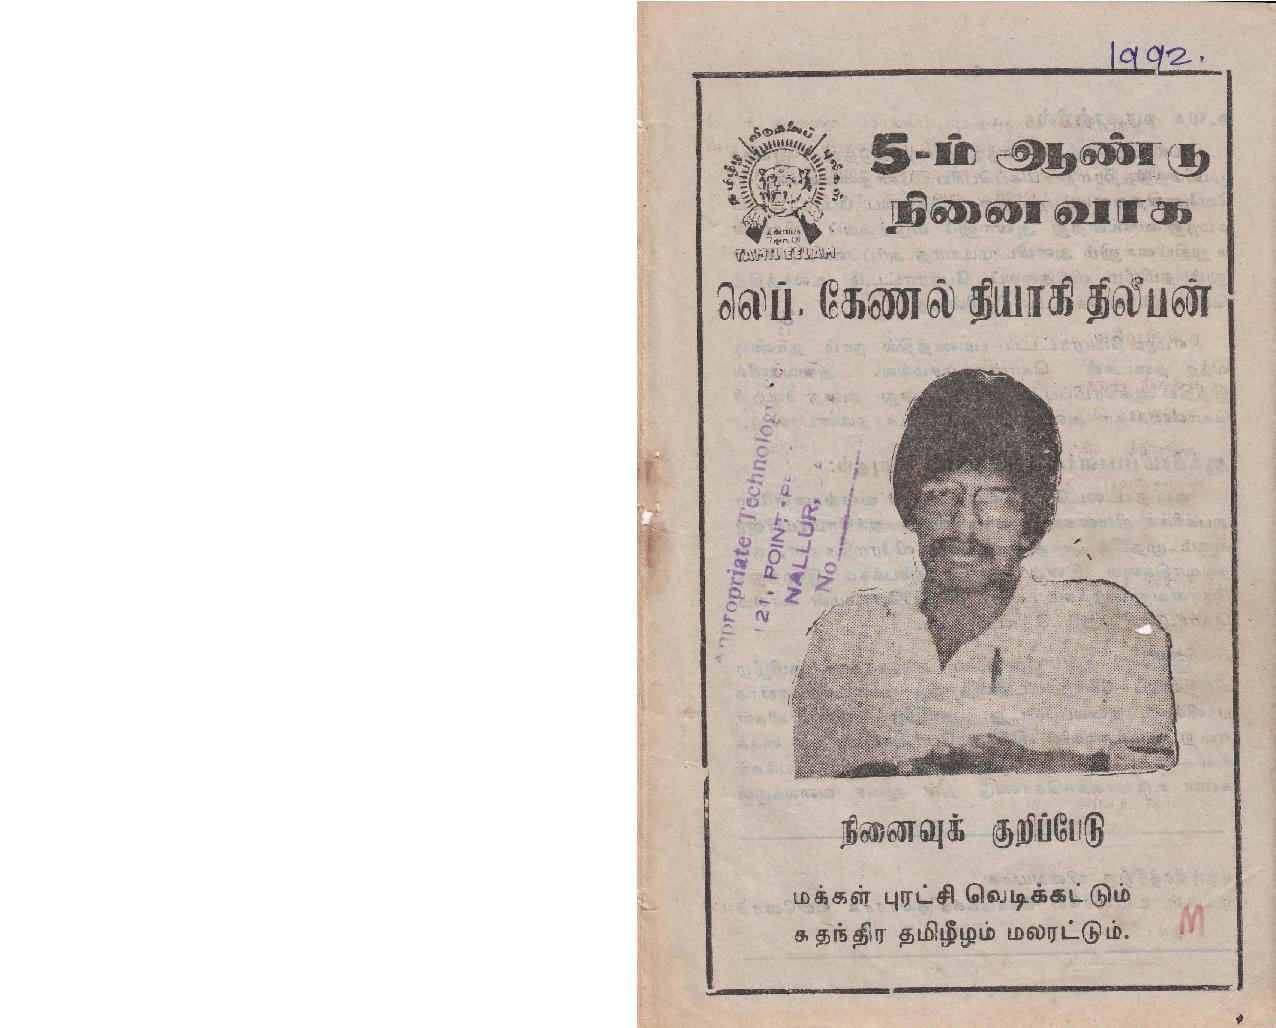 1992.
தமிழீழ விடுதலைப் புலிகள்
TAMIL EELAM
5-ம் ஆண்டு
நினைவாக
லெப். கேணல் தியாகி திலீபன்
Appropriate Technology
121, POINT PE
NALLUR,
No
நினைவுக் குறிப்பேடு
மக்கள் புரட்சி வெடிக்கட்டும்
சுதந்திர தமிழீழம் மலரட்டும்.
M